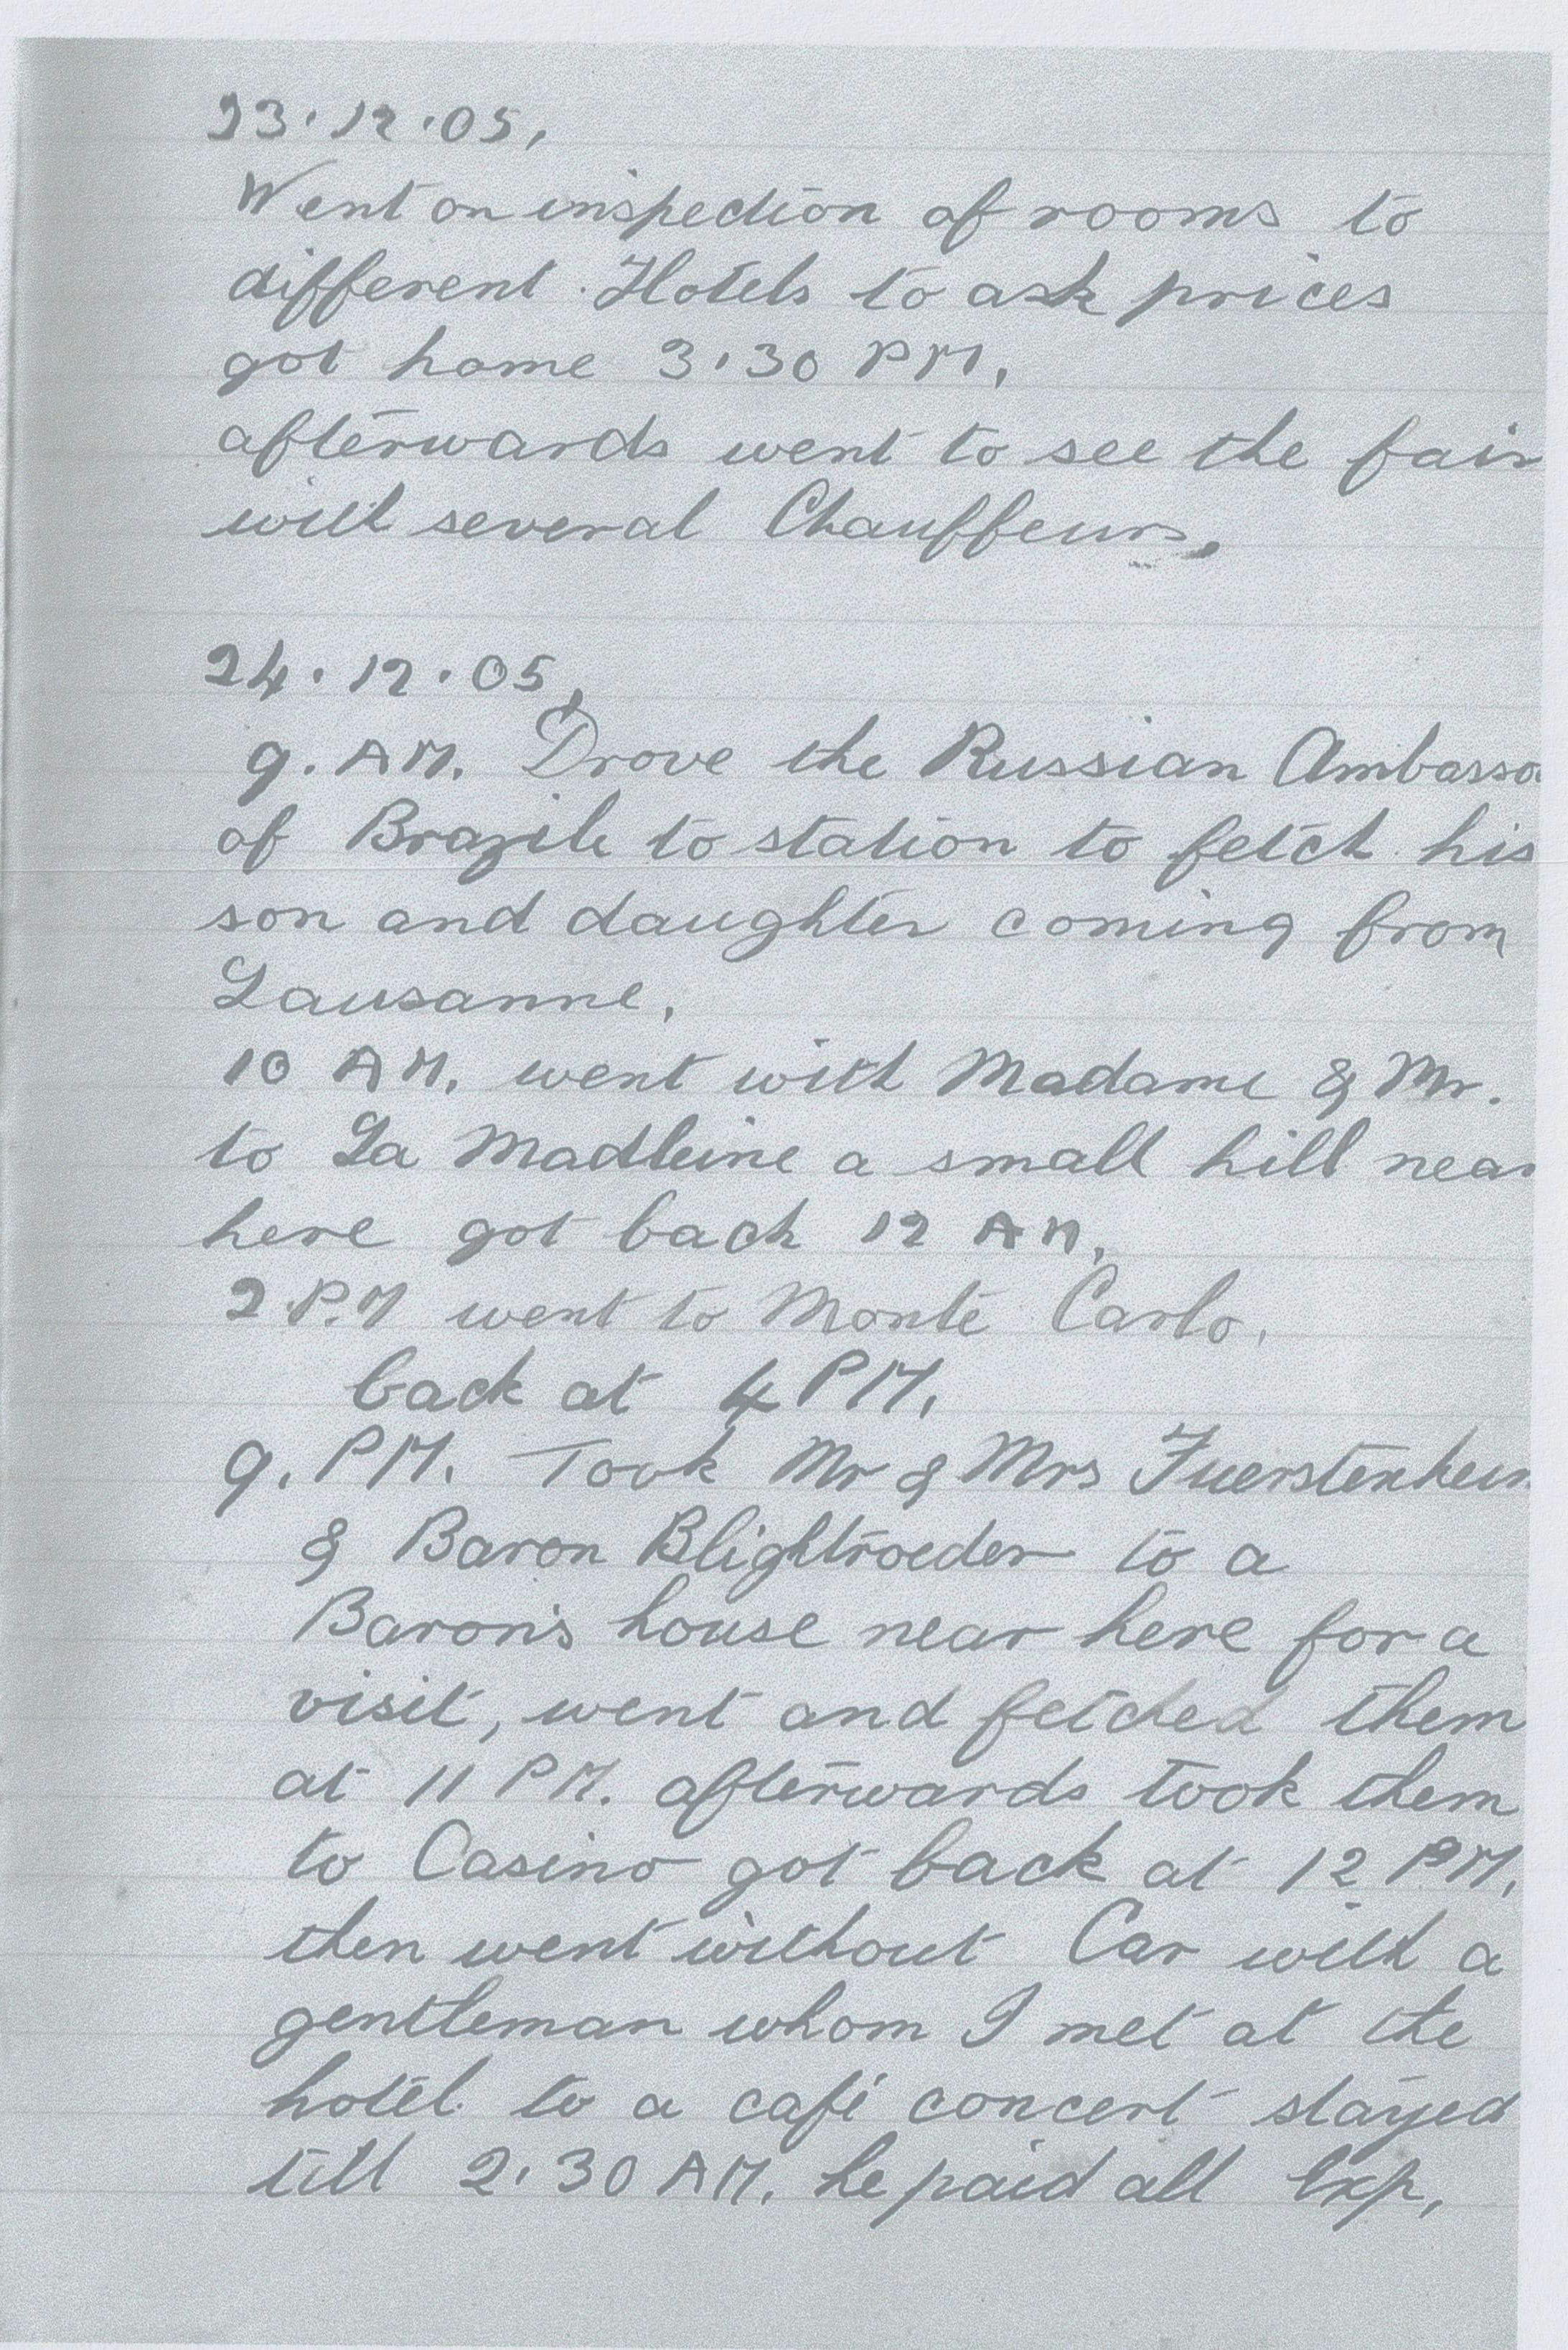 23.12.05,
Went on inspection of rooms to
different Hotels to ask prices
got home 3.30 PM,
afterwards went to see the fair
with several Chauffeurs,
24.12.05,
9. AM. Drove the Russian Ambassa
of Brazile to station to fetch his
son and daughter coming from
Lausanne,
10 AM, went with Madame & Mr.
to La Madleine a small hill near
here got back 12 AM,
2 P.M went to Monte Carlo,
back at 4 PM,
9. PM. Took Mr & Mrs Fuerstenheim
& Baron Blightroeder to a
Baron's house near here for a
visit, went and fetched them
at 11 PM. afterwards took them
to Casino got back at 12 PM,
then went without Car with a
gentleman whom I met at the
hotel to a café concert stayed
till 2.30 AM. he paid all Exp,